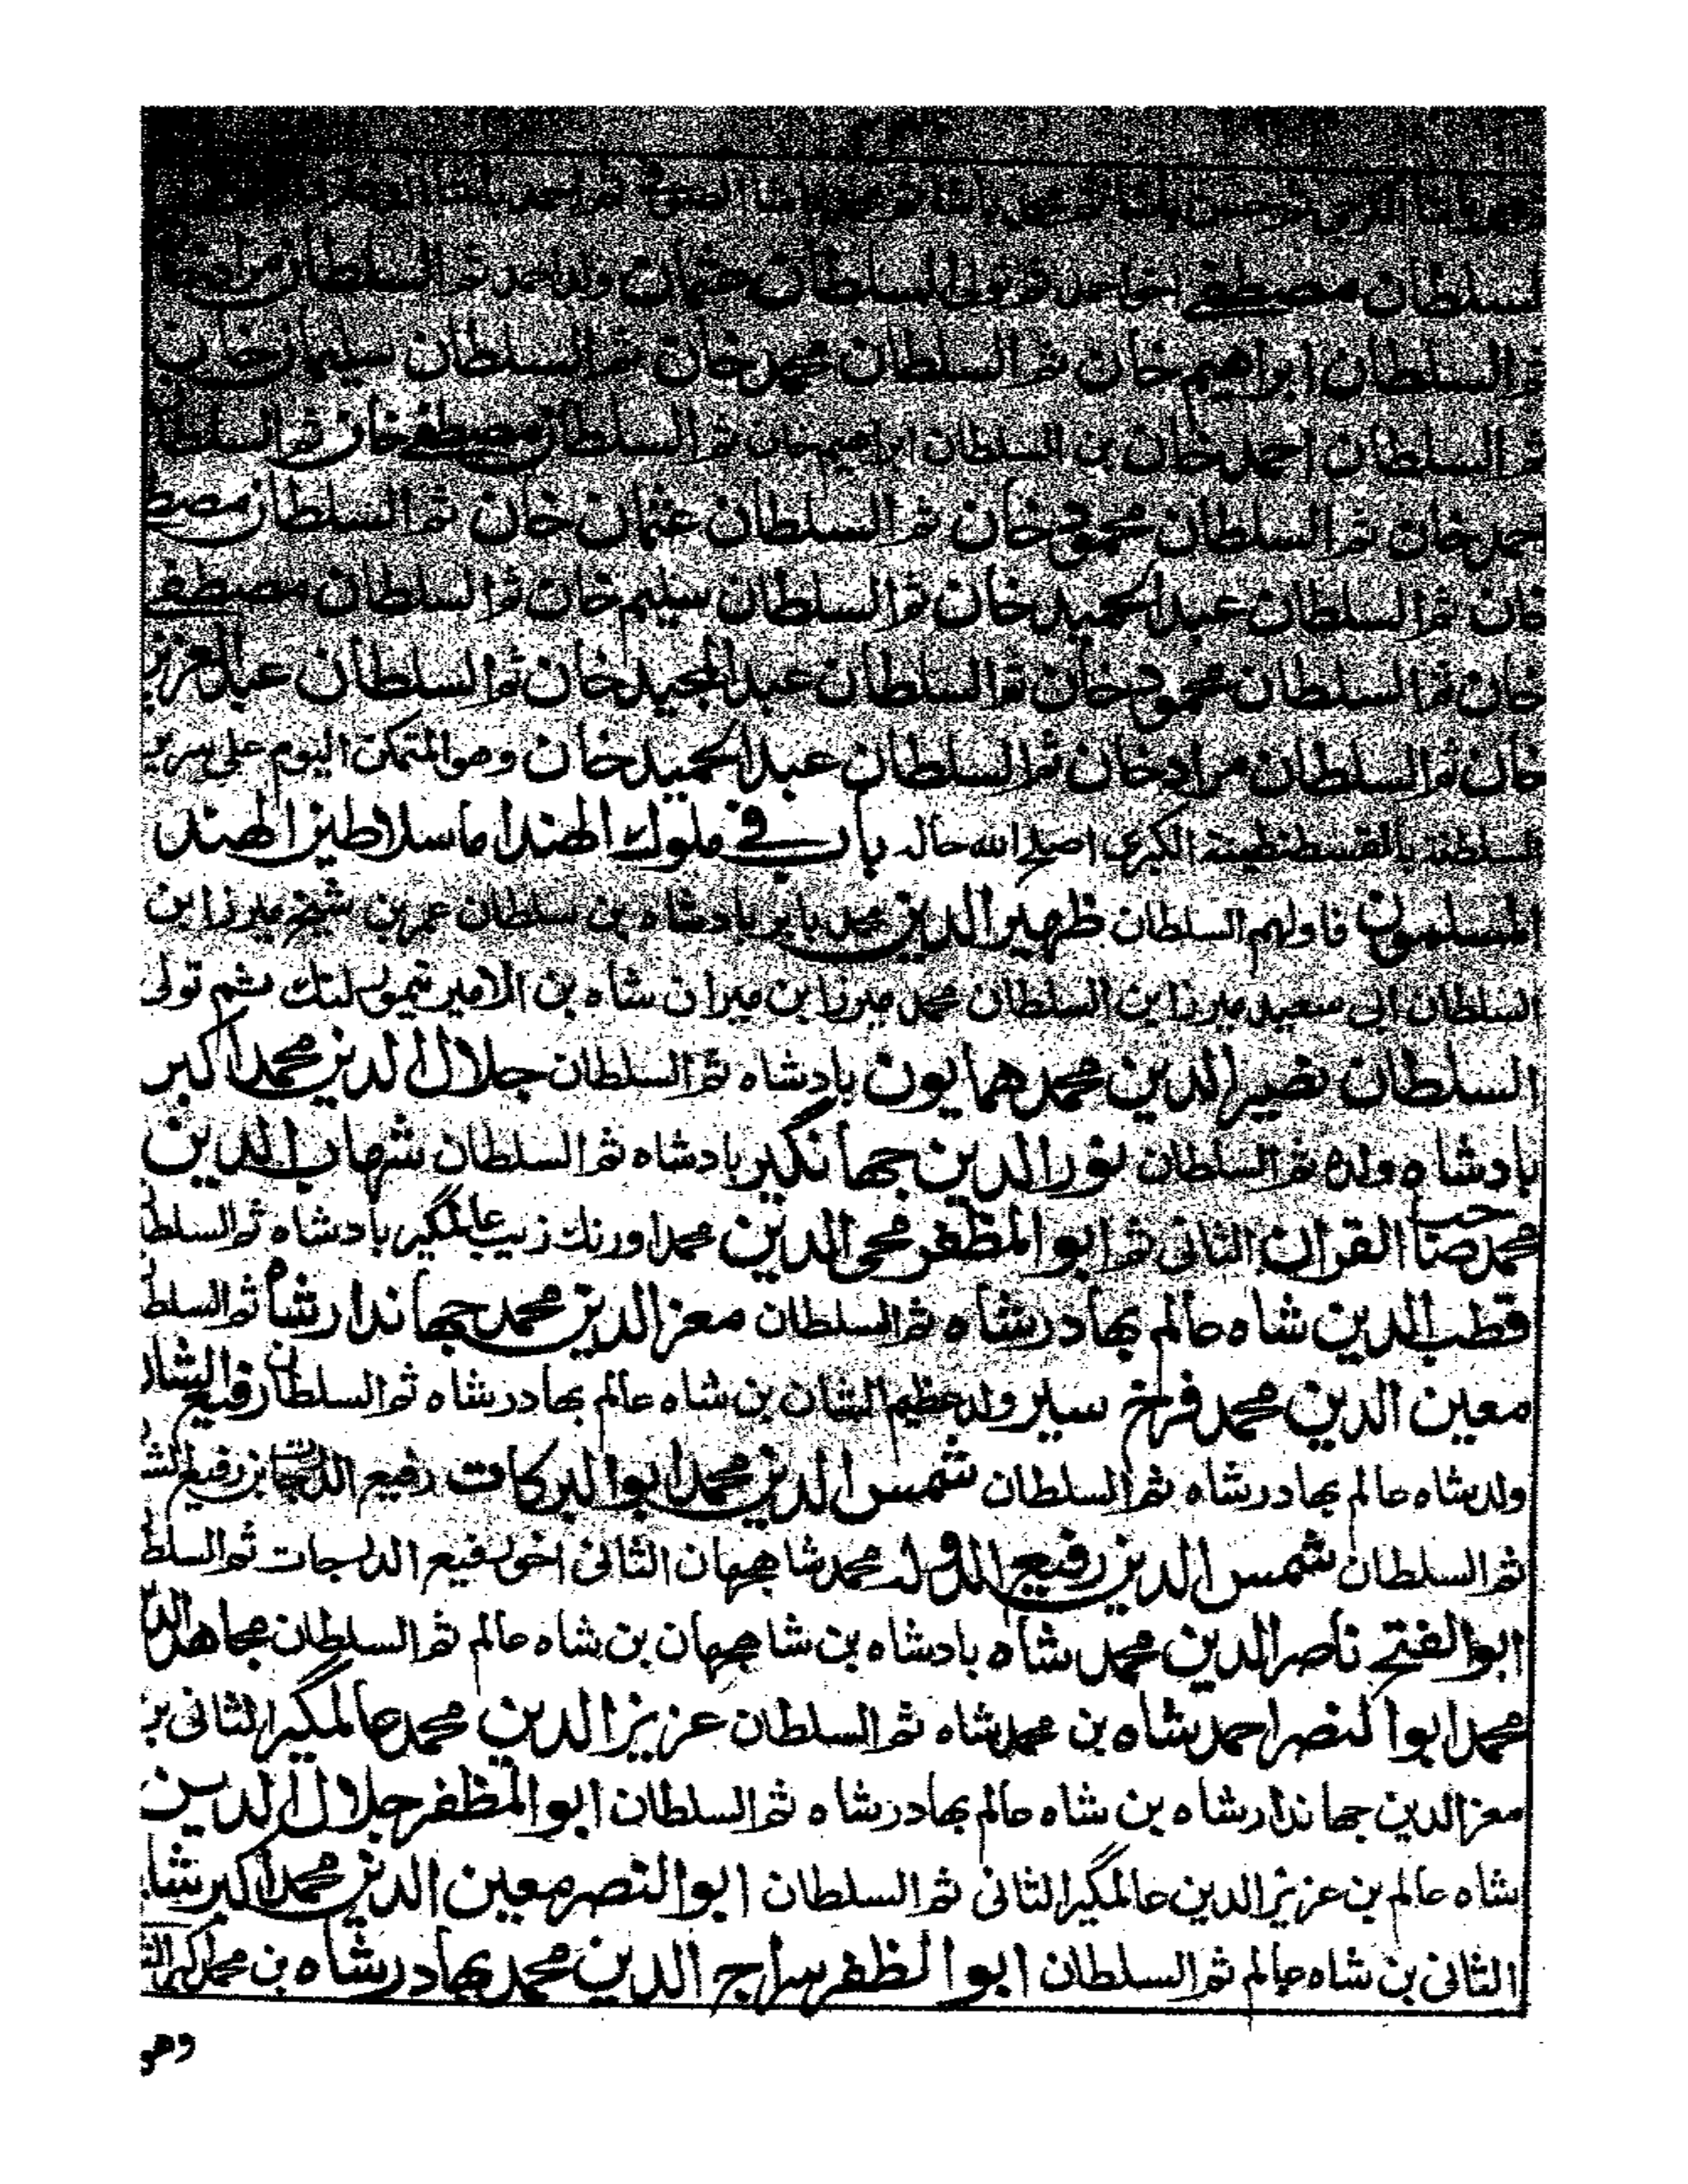 باشا ثم احمد باشا
السلطان مصطفى اخو احمد ثم تولى السلطان عثمان ولد احمد ثم السلطان مراد
ثم السلطان ابراهيم خان ثم السلطان محمد خان ثم السلطان سليمان خان
ثم السلطان احمد خان بن السلطان ابراهيم خان ثم السلطان مصطفى خان ثم السلطان
احمد خان ثم السلطان محمود خان ثم السلطان عثمان خان ثم السلطان مصطـ
خان ثم السلطان عبد الحميد خان ثم السلطان سليم خان ثم السلطان مصطفى
خان ثم السلطان محمود خان ثم السلطان عبد المجيد خان ثم السلطان عبد العزيز
خان ثم السلطان مراد خان ثم السلطان عبد الحميد خان وهو المتمكن اليوم على سرير
السلطنة بالقسطنطينية الكبرى اصلح الله حاله باب في ملوك الهند اما سلاطين الهند
المسلمون فاولهم السلطان ظهير الدين محمد بابر بادشاه بن سلطان عمر بن شيخ ميرزا بن
السلطان ابى سعيد ميرزا بن السلطان محمد ميرزا بن ميران شاه بن الامير تيمور لنك ثم تولى
السلطان نصير الدين محمد همايون بادشاه ثم السلطان جلال الدين محمد اكبر
بادشاه ولده ثم السلطان نور الدين جهانگير بادشاه ثم السلطان شهاب الدين
محمد صاحب القران الثانى ثم ابو المظفر محى الدين محمد اورنك زيب عالمگير بادشاه ثم السلطا
قطب الدين شاه عالم بهادر شاه ثم السلطان معز الدين محمد جهاندار شاه ثم السلط
معين الدين محمد فرخ سير ولد عظيم الشان بن شاه عالم بهادر شاه ثم السلطان رفيع الشان
ولد شاه عالم بهادر شاه ثم السلطان شمس الدين محمد ابو البركات رفيع الدرجات بن رفيع الشـ
ثم السلطان شمس الدين رفيع الدوله محمد شاهجهان الثانى اخو رفيع الدرجات ثم السلط
ابو الفتح ناصر الدين محمد شاه بادشاه بن شاهجهان بن شاه عالم ثم السلطان مجاهد الدين
محمد ابو النصر احمد شاه بن محمد شاه ثم السلطان عزيز الدين محمد عالمگير الثانى بن
معز الدين جهاندار شاه بن شاه عالم بهادر شاه ثم السلطان ابو المظفر جلال الدين
شاه عالم بن عزيز الدين عالمگير الثانى ثم السلطان ابو النصر معين الدين محمد اكبر شا
الثانى بن شاه عالم ثم السلطان ابو الظفر سراج الدين محمد بهادر شاه بن محمد اكبر الثا
وهو